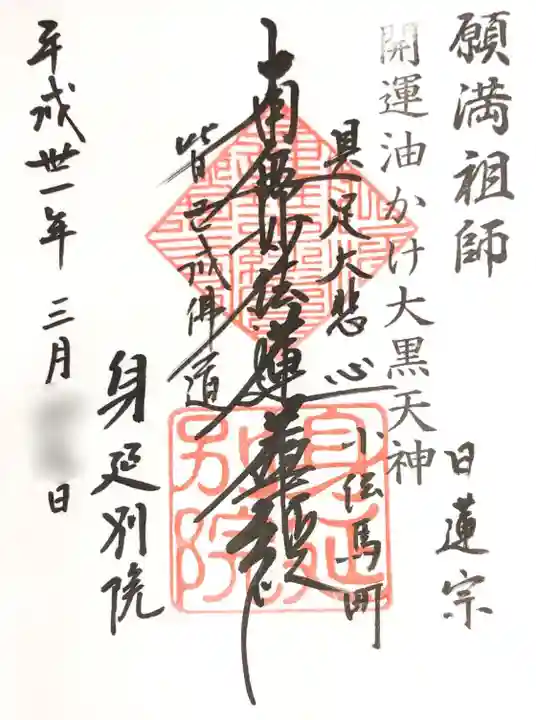 願満祖師
日蓮宗
開運油かけ大黒天神
具足大悲心
小伝馬町
南無妙法蓮華経
皆已成佛道
身延別院
平成丗一年三月 日
身延別院